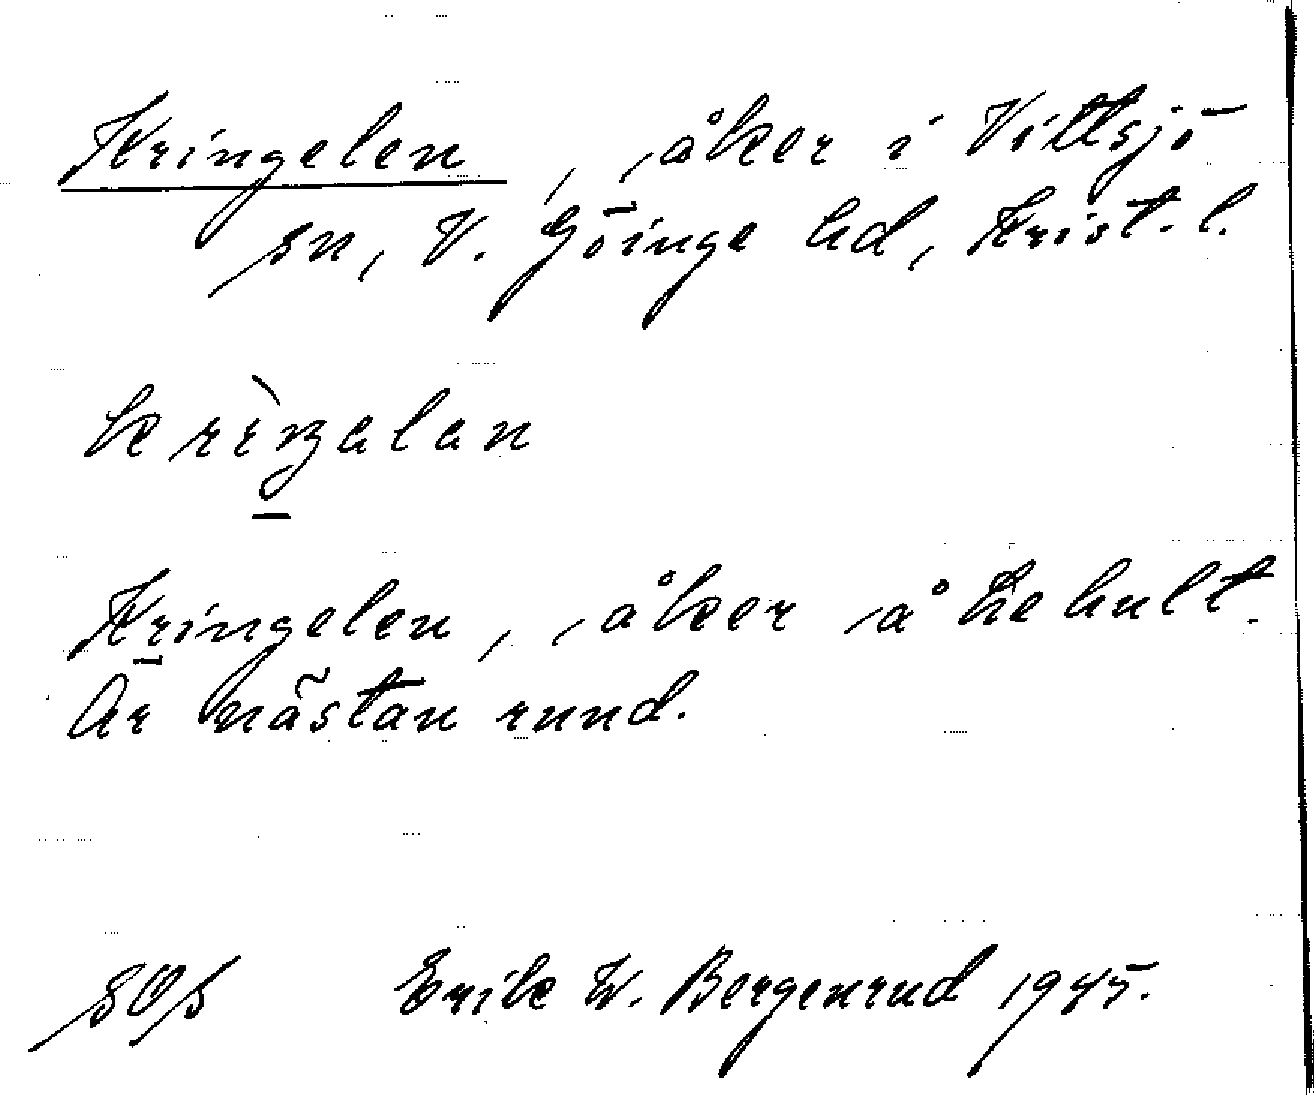 Kringelen, åker i Vittsjö
sn, V. Göinge hd, Krist. l.
krìŋalan
Kringelen, åker å Lehult.
Är nästan rund.
SOS Erik W. Bergenrud 1945.